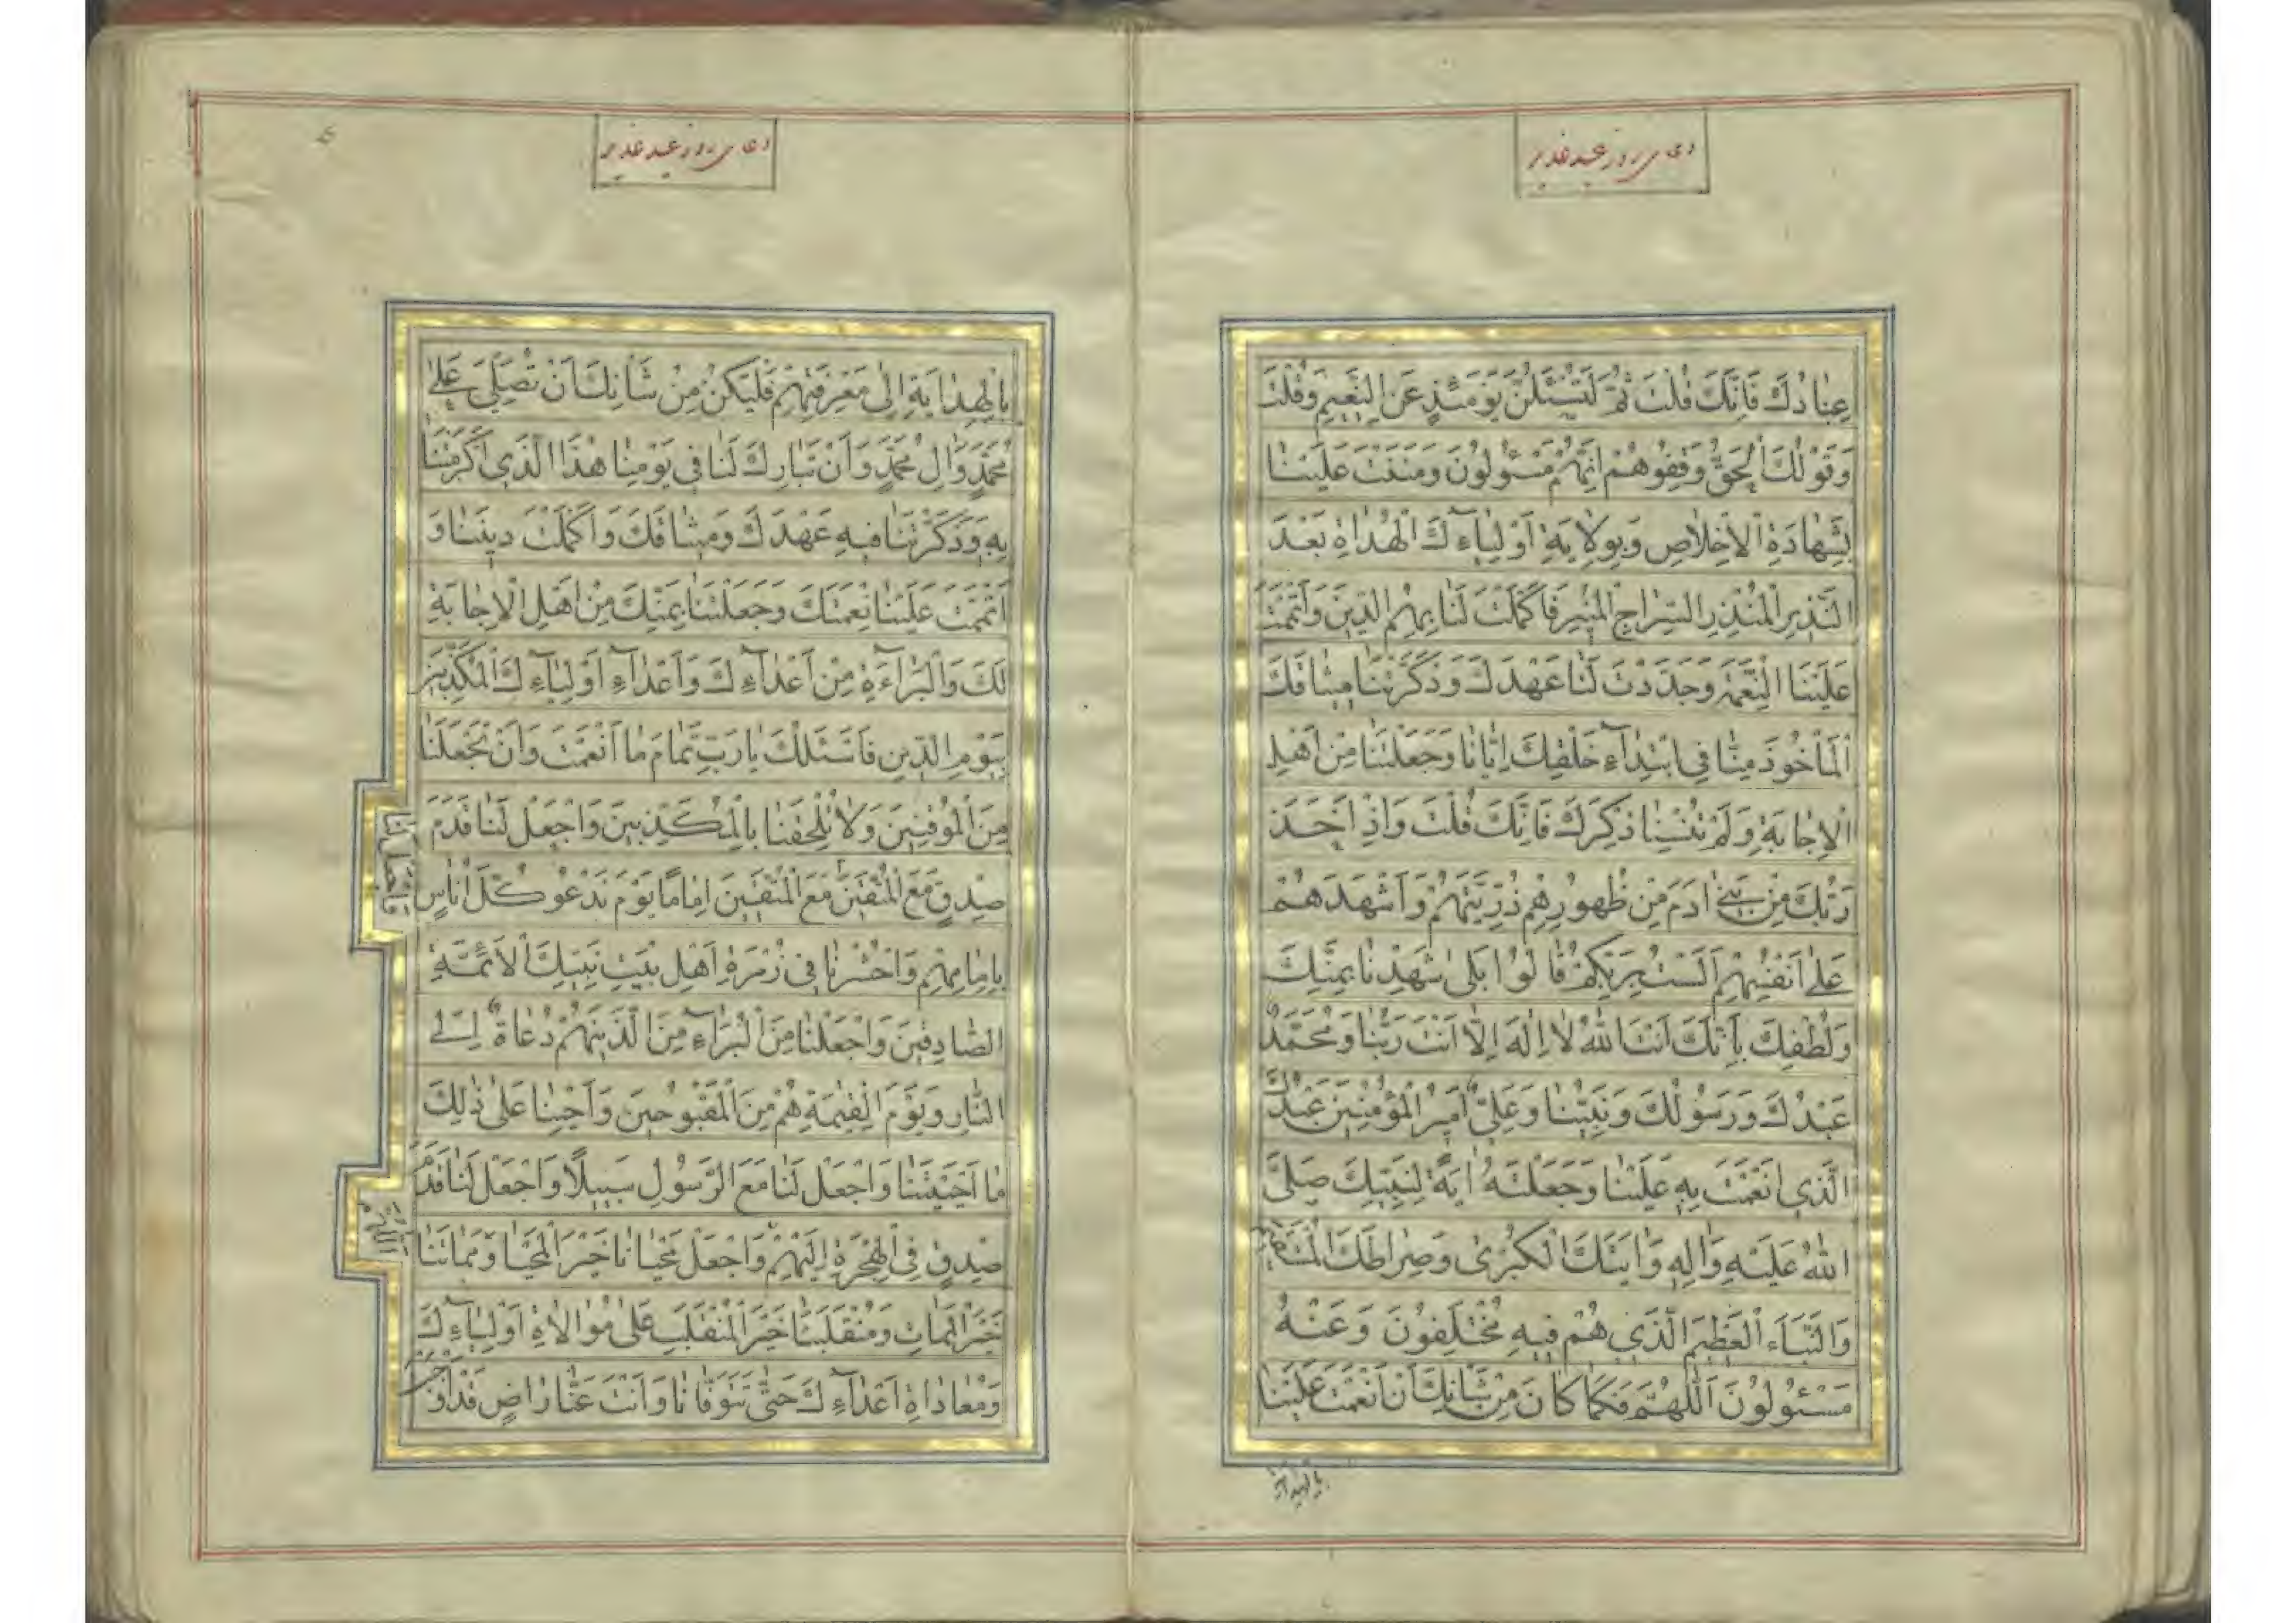 دعای روز عید غدیر
عِبادُكَ فَاِنَّكَ قُلْتَ ثُمَّ لَتُسْئَلُنَّ يَوْمَئِذٍ عَنِ النَّعيمِ وَقُلْتَ
وَقَوْلُكَ الْحَقُّ وَقِفُوهُمْ اِنَّهُمْ مَسْئُولُونَ وَمَنَنْتَ عَلَيْنا
بِشَهادَةِ الْاِخْلاصِ وَبِوِلايَةِ اَوْلِياۤءِكَ الْهُداةِ بَعْدَ
النَّذيرِ الْمُنْذِرِ السِّراجِ الْمُنيرِ فَاَكْمَلْتَ لَنا بِهِمُ الدّينَ وَاَتْمَمْتَ
عَلَيْنَا النِّعْمَةَ وَجَدَّدْتَ لَنا عَهْدَكَ وَذَكَّرْتَنا ميثاقَكَ
الْمَاْخُوذَ مِنّا فِى ابْتِداۤءِ خَلْقِكَ اِيّانا وَجَعَلْتَنا مِنْ اَهْلِ
الْاِجابَةِ وَلَمْ تُنْسِنا ذِكْرَكَ فَاِنَّكَ قُلْتَ وَاِذْ اَخَذَ
رَبُّكَ مِنْ بَنى ادَمَ مِنْ ظُهُورِهِمْ ذُرِّيَّتَهُمْ وَاَشْهَدَهُمْ
عَلى اَنْفُسِهِمْ اَلَسْتُ بِرَبِّكُمْ قالُوا بَلى شَهِدْنا بِمَنِّكَ
وَلُطْفِكَ بِاَنَّكَ اَنْتَ اللهُ لا اِلهَ اِلّا اَنْتَ رَبُّنا وَمُحَمَّدٌ
عَبْدُكَ وَرَسُولُكَ وَنَبِيُّنا وَعَلِىٌّ اَميرُ الْمُؤْمِنينَ عَبْدُكَ
الَّذى اَنْعَمْتَ بِهِ عَلَيْنا وَجَعَلْتَهُ ايَةً لِنَبِيِّكَ صَلَّى
اللهُ عَلَيْهِ وَالِهِ وَايَتَكَ الْكُبْرى وَصِراطَكَ الْمُسْتَقيمَ
وَالنَّبَاَءَ الْعَظيمَ الَّذى هُمْ فيهِ مُخْتَلِفُونَ وَعَنْهُ
مَسْئُولُونَ اَللّهُمَّ فَكَما كانَ مِنْ شَاْنِكَ اَنْ اَنْعَمْتَ عَلَيْنا
بالهداية
دعای روز عید غدیر
بِالْهِدايَةِ اِلى مَعْرِفَتِهِمْ فَلْيَكُنْ مِنْ شَاْنِكَ اَنْ تُصَلِّىَ عَلى
مُحَمَّدٍ وَالِ مُحَمَّدٍ وَاَنْ تُبارِكَ لَنا فى يَوْمِنا هذَا الَّذى اَكْرَمْتَنا
بِهِ وَذَكَّرْتَنا فيهِ عَهْدَكَ وَميثاقَكَ وَاَكْمَلْتَ دينَنا وَ
اَتْمَمْتَ عَلَيْنا نِعْمَتَكَ وَجَعَلْتَنا بِمَنِّكَ مِنْ اَهْلِ الْاِجابَةِ
لَكَ وَالْبَراۤءَةِ مِنْ اَعْداۤءِكَ وَاَعْداۤءِ اَوْلِياۤءِكَ الْمُكَذِّبينَ
بِيَوْمِ الدّينِ فَاَسْئَلُكَ يا رَبِّ تَمامَ ما اَنْعَمْتَ وَاَنْ تَجْعَلَنا
مِنَ الْمُوقِنينَ وَلا تُلْحِقْنا بِالْمُكَذِّبينَ وَاجْعَلْ لَنا قَدَمَ
صِدْقٍ مَعَ الْمُتَّقينَ مَعَ الْمُتَّقينَ اِمامًا يَوْمَ تَدْعُو كُلَّ اُناسٍ
بِاِمامِهِمْ وَاحْشُرْنا فى زُمْرَةِ اَهْلِ بَيْتِ نَبِيِّكَ الْاَئِمَّةِ
الصّادِقينَ وَاجْعَلْنا مِنَ الْبُرَاۤءِ مِنَ الَّذينَهُمْ دُعاةٌ اِلَى
النّارِ وَيَوْمَ الْقِيمَةِ هُمْ مِنَ الْمَقْبُوحينَ وَاَحْيِنا عَلى ذلِكَ
ما اَحْيَيْتَنا وَاجْعَلْ لَنا مَعَ الرَّسُولِ سَبيلًا وَاجْعَلْ لَنا قَدَمَ
صِدْقٍ فِى الْهِجْرَةِ اِلَيْهِمْ وَاجْعَلْ مَحْيانا خَيْرَ الْمَحْيا وَمَماتَنا
خَيْرَ الْمَماتِ وَمُنْقَلَبَنا خَيْرَ الْمُنْقَلَبِ عَلى مُوالاةِ اَوْلِياۤءِكَ
وَمُعاداةِ اَعْداۤءِكَ حَتّى تَتَوَفّانا وَاَنْتَ عَنّا راضٍ قَدْ اَوْ